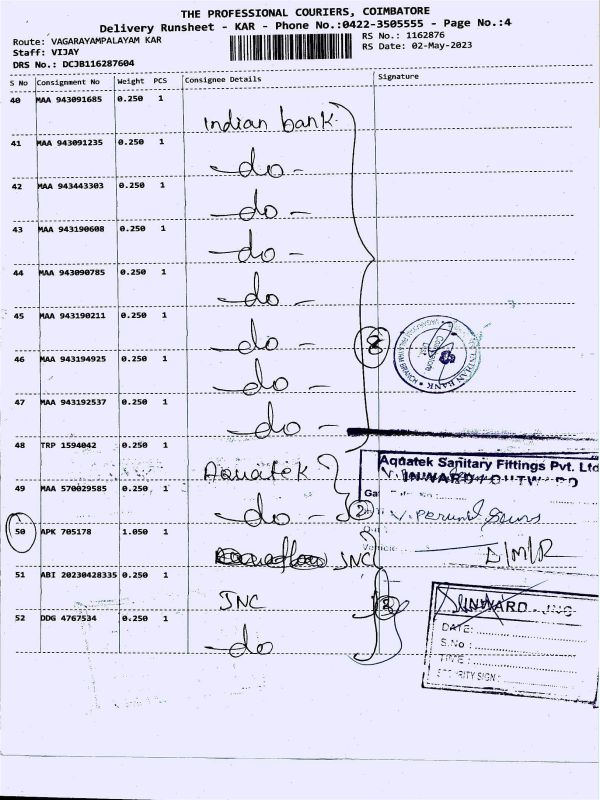 THE PROFESSIONAL COURIERS, COIMBATORE
Delivery Runsheet - KAR - Phone No.:0422-3505555 - Page No.:4
Route: VAGARAYAMPALAYAM KAR
RS No.: 1162876
Staff: VIJAY
RS Date: 02-May-2023
DRS No.: DCJB116287604
S No Consignment No Weight PCS Consignee Details Signature
40 MAA 943091685 0.250 1
Indian bank
41 MAA 943091235 0.250 1
-do-
42 MAA 943443303 0.250 1
-do-
43 MAA 943190608 0.250 1
-do-
44 MAA 943090785 0.250 1
-do-
45 MAA 943190211 0.250 1
-do-
8
46 MAA 943194925 0.250 1
-do-
INDIAN BANK
47 MAA 943192537 0.250 1
-do-
48 TRP 1594042 0.250 1
Aquatek
Aquatek Sanitary Fittings Pvt. Ltd
INWARD / OUTWARD
49 MAA 570029585 0.250 1
-do-
2
50 APK 705178 1.050 1
JNC
51 ABI 20230428335 0.250 1
JNC
2
INWARD - JNC
DATE:
S.No :
TIME :
SECURITY SIGN :
52 DDG 4767534 0.250 1
-do